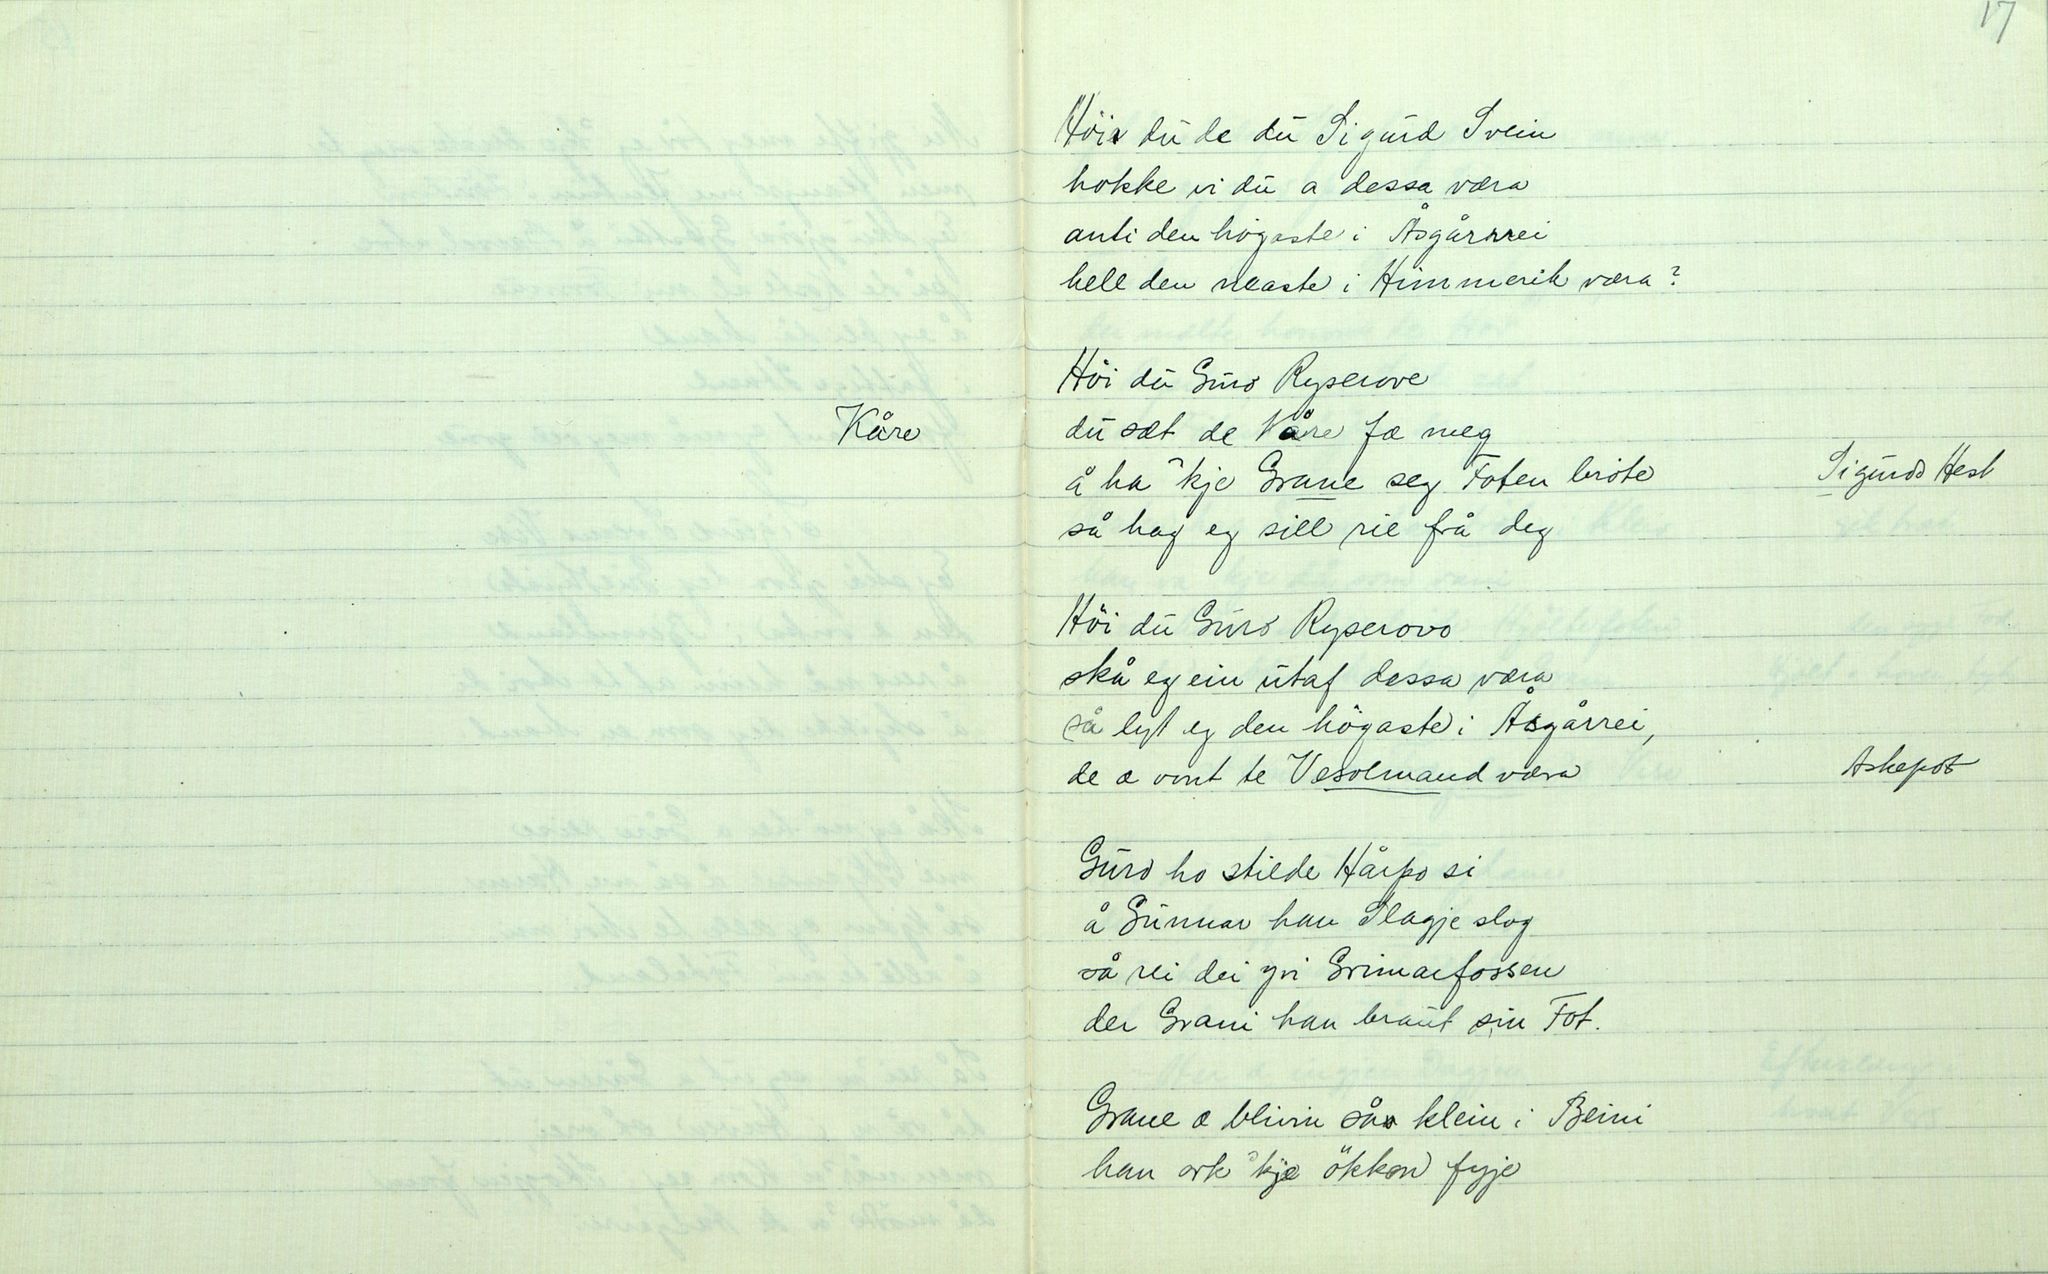 17
Höir du de du Sigurd Svein
hokke vi du a dessa væra
anti den högaste i Åsgårrei
hell den neaste i Himmerik væra?
Höi du Guro Ryserove
Kåre
du sæt de Våre fæ meg
å ha 'kje Grane seg Foten bröte
Sigurds Hest
så hag eg sill rie frå deg
Höi du Guro Ryserovo
skå eg ein utaf dessa væra
så lyt eg den högaste i Åsgårrei,
de æ vont te Vesolmand væra
Askepot
Guro ho stilde Hårpo si
å Gunnar han Slagje slog
så rei dei yvi Grimarfossen
der Grani han braut sin Fot.
Grane æ blivin så klein i Beini
han ork 'kje ökkon fyje